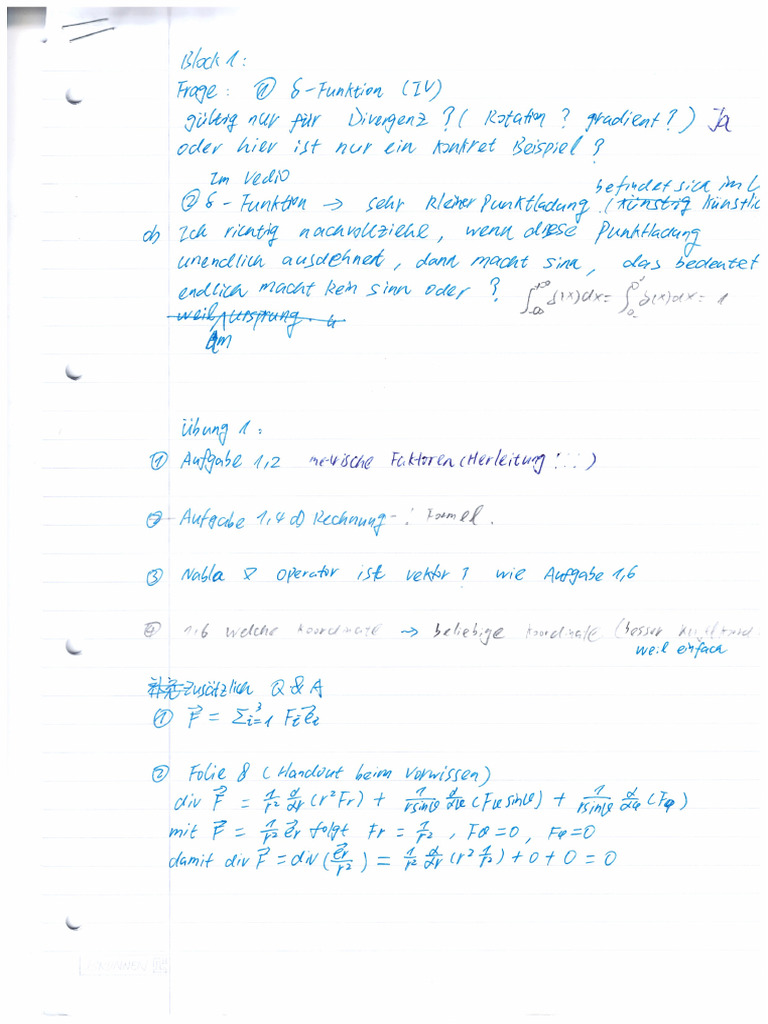 Block 1:
Frage: ① δ-Funktion (IV)
gültig nur für Divergenz? (Rotation? gradient?) Ja
oder hier ist nur ein konkret Beispiel?
Im Vedio
befindet sich im
② δ-Funktion → sehr kleiner Punktladung (künstig
ob Ich richtig nachvollziehe, wenn diese Punktladung
unendlich ausdehnet, dann macht sinn, das bedeutet
endlich macht kein sinn oder? ∫_{-∞}^{+∞} δ(x)dx = ∫_{0-}^{0+} δ(x)dx = 1
weil ursprung.
Am
Übung 1:
① Aufgabe 1,2 metrische Faktoren (Herleitung !!!)
② Aufgabe 1,4 d) Rechnung - : Formel.
③ Nabla operator ist vektor? wie Aufgabe 1,6
④ 1,6 welche koordinate → beliebige koordinate (besser
weil einfach
补充 Zusätzlich Q & A
① F⃗ = Σ_{i=1}^{3} F_i e⃗_i
② Folie 8 (Handout beim Vorwissen)
div F⃗ = 1/r² d/dr (r² Fr) + 1/(r sinθ) d/dθ (Fθ sinθ) + 1/(r sinθ) d/dφ (Fφ)
mit F⃗ = 1/r² e⃗r folgt Fr = 1/r², Fθ = 0, Fφ = 0
damit div F⃗ = div (e⃗r/r²) = 1/r² d/dr (r² 1/r²) + 0 + 0 = 0